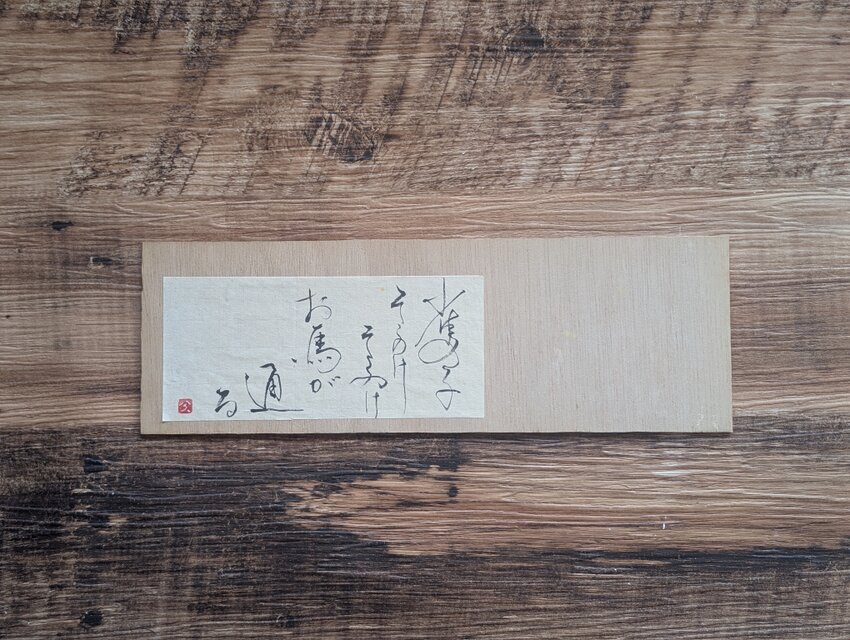 雀の子
そこのけ
そこのけ
お馬が
通
る